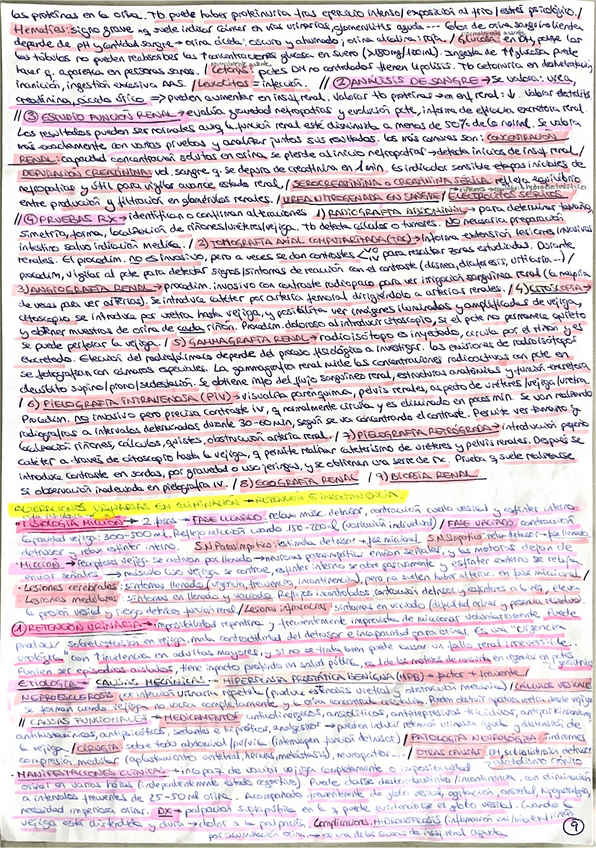 las proteínas en la orina. Tb puede haber proteinuria tras ejercicio intenso/exposición al frío/estrés psicológico. /
Hematíes: signo grave → suele indicar cáncer en vías urinarias, glomerulitis aguda... Color de orina sanguinolienta
depende de pH y cantidad sangre → orina ácida: oscura y ahumada; orina alcalina: roja / Glucosuria → en DH, porque
los túbulos no pueden reabsorber las ↑concentraciones glucosa en suero (>180mg/100ml). Ingesta de ↑↑glucosa puede
hacer q. aparezca en personas sanas. / Cetonas: pctes DH no controlados tienen lipólisis. Tb cetonuria en deshidratación,
inanición, ingestión excesiva AAS. / Leucocitos = infección. // ② ANÁLISIS DE SANGRE → Se valora: urea,
creatinina, ácido úrico → pueden aumentar en insuf. renal. Valorar tb proteínas → en enf. renal: ↓. Valorar
// ③ ESTUDIO FUNCIÓN RENAL → evalúa gravedad nefropatías y evolución pcte, informa de eficacia excretora renal.
Los resultados pueden ser normales aunq la función renal esté disminuida a menos de 50% de lo normal. Se valora
más exactamente con varias pruebas y analizar juntos sus resultados. Las más comunes son: CONCENTRACIÓN
RENAL: capacidad concentración solutos en orina, se pierde al inicio nefropatías → detecta inicios de insuf. renal /
DEPURACIÓN CREATININA: vol. sangre q. se depura de creatinina en 1 min. Es indicador sensible etapas iniciales de
nefropatías y útil para vigilar avance estado renal / SEROCREATININA O CREATININA SÉRICA: refleja equilibrio
entre producción y filtración en glomérulos renales. / UREA NITROGENADA EN SANGRE / ELECTROLITOS SÉRICOS
// ④ PRUEBAS RX → identifican o confirman alteraciones 1) RADIOGRAFÍA ABDOMINAL → para determinar tamaño,
simetría, forma, localización de riñones/uréteres/vejiga. Tb detecta cálculos o tumores. NO necesaria preparación
intestino salvo indicación médica. / 2) TOMOGRAFÍA AXIAL COMPUTARIZADA (TAC) → informa extensión lesiones invasivas
renales. El procedim. no es invasivo, pero a veces se dan contrastes para resaltar zonas estudiadas. Durante
procedim, vigilar al pcte para detectar signos/síntomas de reacción con el contraste (disnea, diaforesis, urticaria...) /
3) ANGIOGRAFÍA RENAL → procedim. invasivo con contraste radiopaco para ver irrigación sanguínea renal (la mayoría
de veces para ver arterias). Se introduce catéter por arteria femoral dirigiéndolo a arterias renales. / 4) CITOSCOPIA →
citoscopio se introduce por uretra hasta vejiga, y posibilita ver imágenes iluminadas y amplificadas de vejiga,
y obtener muestras de orina de cada riñón. Procedim. doloroso al introducir citoscopio, si el pcte no permanece quieto
se puede perforar la vejiga. / 5) GAMMAGRAFÍA RENAL → radioisótopo es inyectado, circula por el riñón y es
excretado. Elección del radiofármaco depende del proceso fisiológico a investigar. Las emisiones de radioisótopos
se fotografían con cámaras especiales. La gammagrafía renal mide las concentraciones radioactivas con pcte en
decúbito supino/prono/sedestación. Se obtiene info del flujo sanguíneo renal, estructuras anatómicas y función excretora
/ 6) PIELOGRAFÍA INTRAVENOSA (PIV) → visualiza parénquima, pelvis renales, aspecto de uréteres/vejiga/uretra.
Procedim. no invasivo pero precisa contraste iv, q. normalmente circula y es eliminado en pocos min. Se van realizando
radiografías a intervalos determinados durante 30-60min, según se va concentrando el contraste. Permite ver tamaño y
localización riñones, cálculos, quistes, obstrucción arteria renal. / 7) PIELOGRAFÍA RETRÓGRADA → introducción pequeño
catéter a través de citoscopio hasta la vejiga, q. permite realizar cateterismo de uréteres y pelvis renales. Después se
introduce contraste en sondas, por gravedad o uso jeringa, y se obtienen una serie de rx. Prueba q. suele realizarse
si observación inadecuada en pielografía iv. / 8) ECOGRAFÍA RENAL / 9) BIOPSIA RENAL
ALTERACIONES URINARIAS EN ELIMINACIÓN → RETENCIÓN E INCONTINENCIA.
• FISIOLOGÍA MICCIÓN → 2 fases → FASE LLENADO: relaja músc. detrusor, contracción cuello vesical y esfínter interno.
Capacidad vejiga: 300-500 ml. Reflejo micción cuando 150-200 (variación individual) / FASE VACIADO: contracción
detrusor y relaja esfínter interno. S.N.Parasimpático: estimula detrusor → fase miccional. S.N.Simpático: relaja detrusor → fase llenado
MICCIÓN → receptores vejiga se activan por llenado → neuronas parasimpáticas envían señales, y las motoras dejan de
enviar señales → músculo liso vejiga se contrae, esfínter interno se abre pasivamente y esfínter externo se relaja.
• Lesiones cerebrales: síntomas llenado (urgencia, frecuencia, incontinencia), pero no suelen haber alterac. en fase miccional /
Lesiones medulares: síntomas en llenado y vaciado. Reflejos incontrolados, contracción detrusor y esfínteres a la vez, eleva
la presión vesical y riesgo deterioro función renal / Lesiones infrasacras: síntomas en vaciado (dificultad orinar y presencia residuo).
① RETENCIÓN URINARIA → imposibilidad repentina y frecuentemente imprevista de miccionar voluntariamente. Puede
producir sobredistensión en vejiga, mala contractilidad del detrusor e incapacidad para orinar. Es una "urgencia
urológica" con ↑ incidencia en adultos mayores, y si no se trata bien puede causar un fallo renal irreversible.
Pueden ser pacientes asilados, tiene impacto profundo en salud pública,
ETIOLOGÍA → CAUSAS MECÁNICAS → HIPERPLASIA PROSTÁTICA BENIGNA (HPB) → factor + frecuente /
NEFROESCLEROSIS por infección urinaria repetida (produce estenosis uretral y obstrucción mecánica) / CÁLCULOS VESICALES
se forman cuando vejiga no vacía completamente y la orina concentrada cristaliza. Pueden
// CAUSAS FUNCIONALES → MEDICAMENTOS: anticolinérgicos, ansiolíticos, antidepresivos tricíclicos, antiparkinsonianos,
antihistamínicos, antipsicóticos, sedantes e hipnóticos, analgésicos → pueden producir retención urinaria aguda y distensión de
la vejiga. / CIRUGÍA sobre todo abdominal/pélvica (interrumpen función detrusor) / PATOLOGÍA NEUROLÓGICA: síndromes
compresión medular (aplastamiento vertebral, hernias, metástasis), neuropatías... / OTRAS CAUSAS
• MANIFESTACIONES CLÍNICAS → incapaz de vaciar vejiga completamente o imposibilidad
orinar en varias horas (independientemente estado hidratativo). Puede haber incontinencia, con eliminación
a intervalos frecuentes de 25-50 ml orina. Acompañado frecuentemente de globo vesical, agitación, ansiedad,
necesidad imperiosa orinar. DX → palpación suprapúbica en la q. puede evidenciarse el globo vesical. Cuando la
vejiga está distendida y dura → dolor a la palpación. Complicaciones: HIDRONEFROSIS
por acumulación orina → es una de las causas de insuf. renal aguda.
9